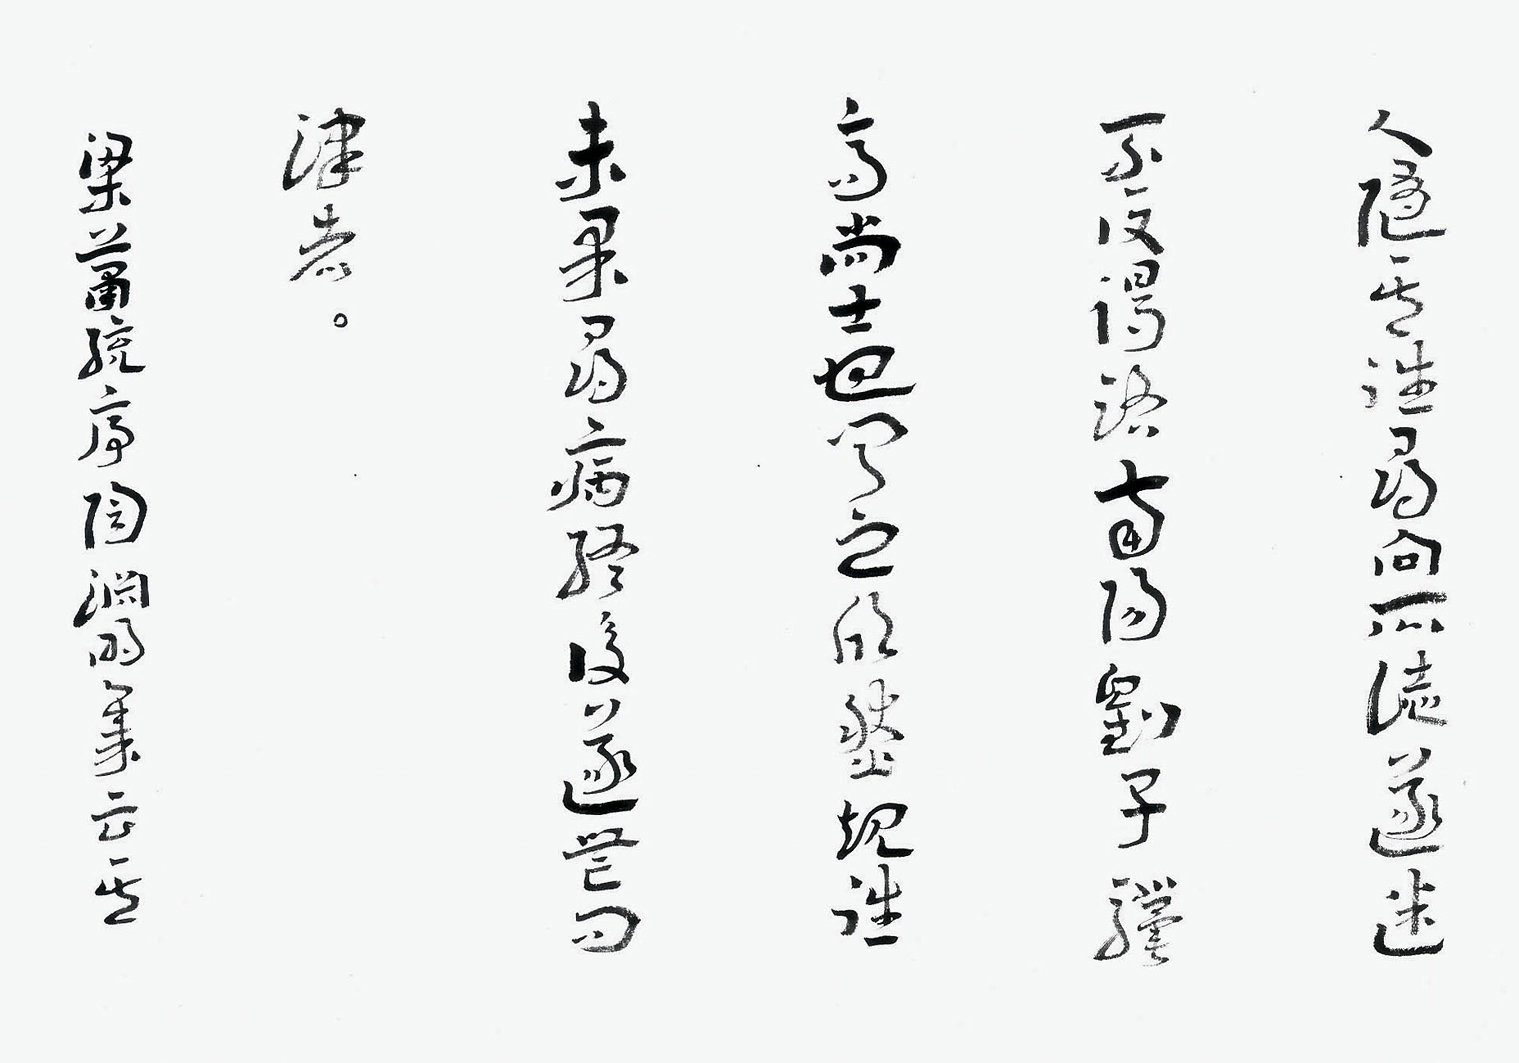 人隨其往尋向所誌遂迷
不復得路南陽劉子驥
高尚士也聞之欣然規往
未果尋病終後遂無問
津者。
梁蕭統序陶淵明集云其